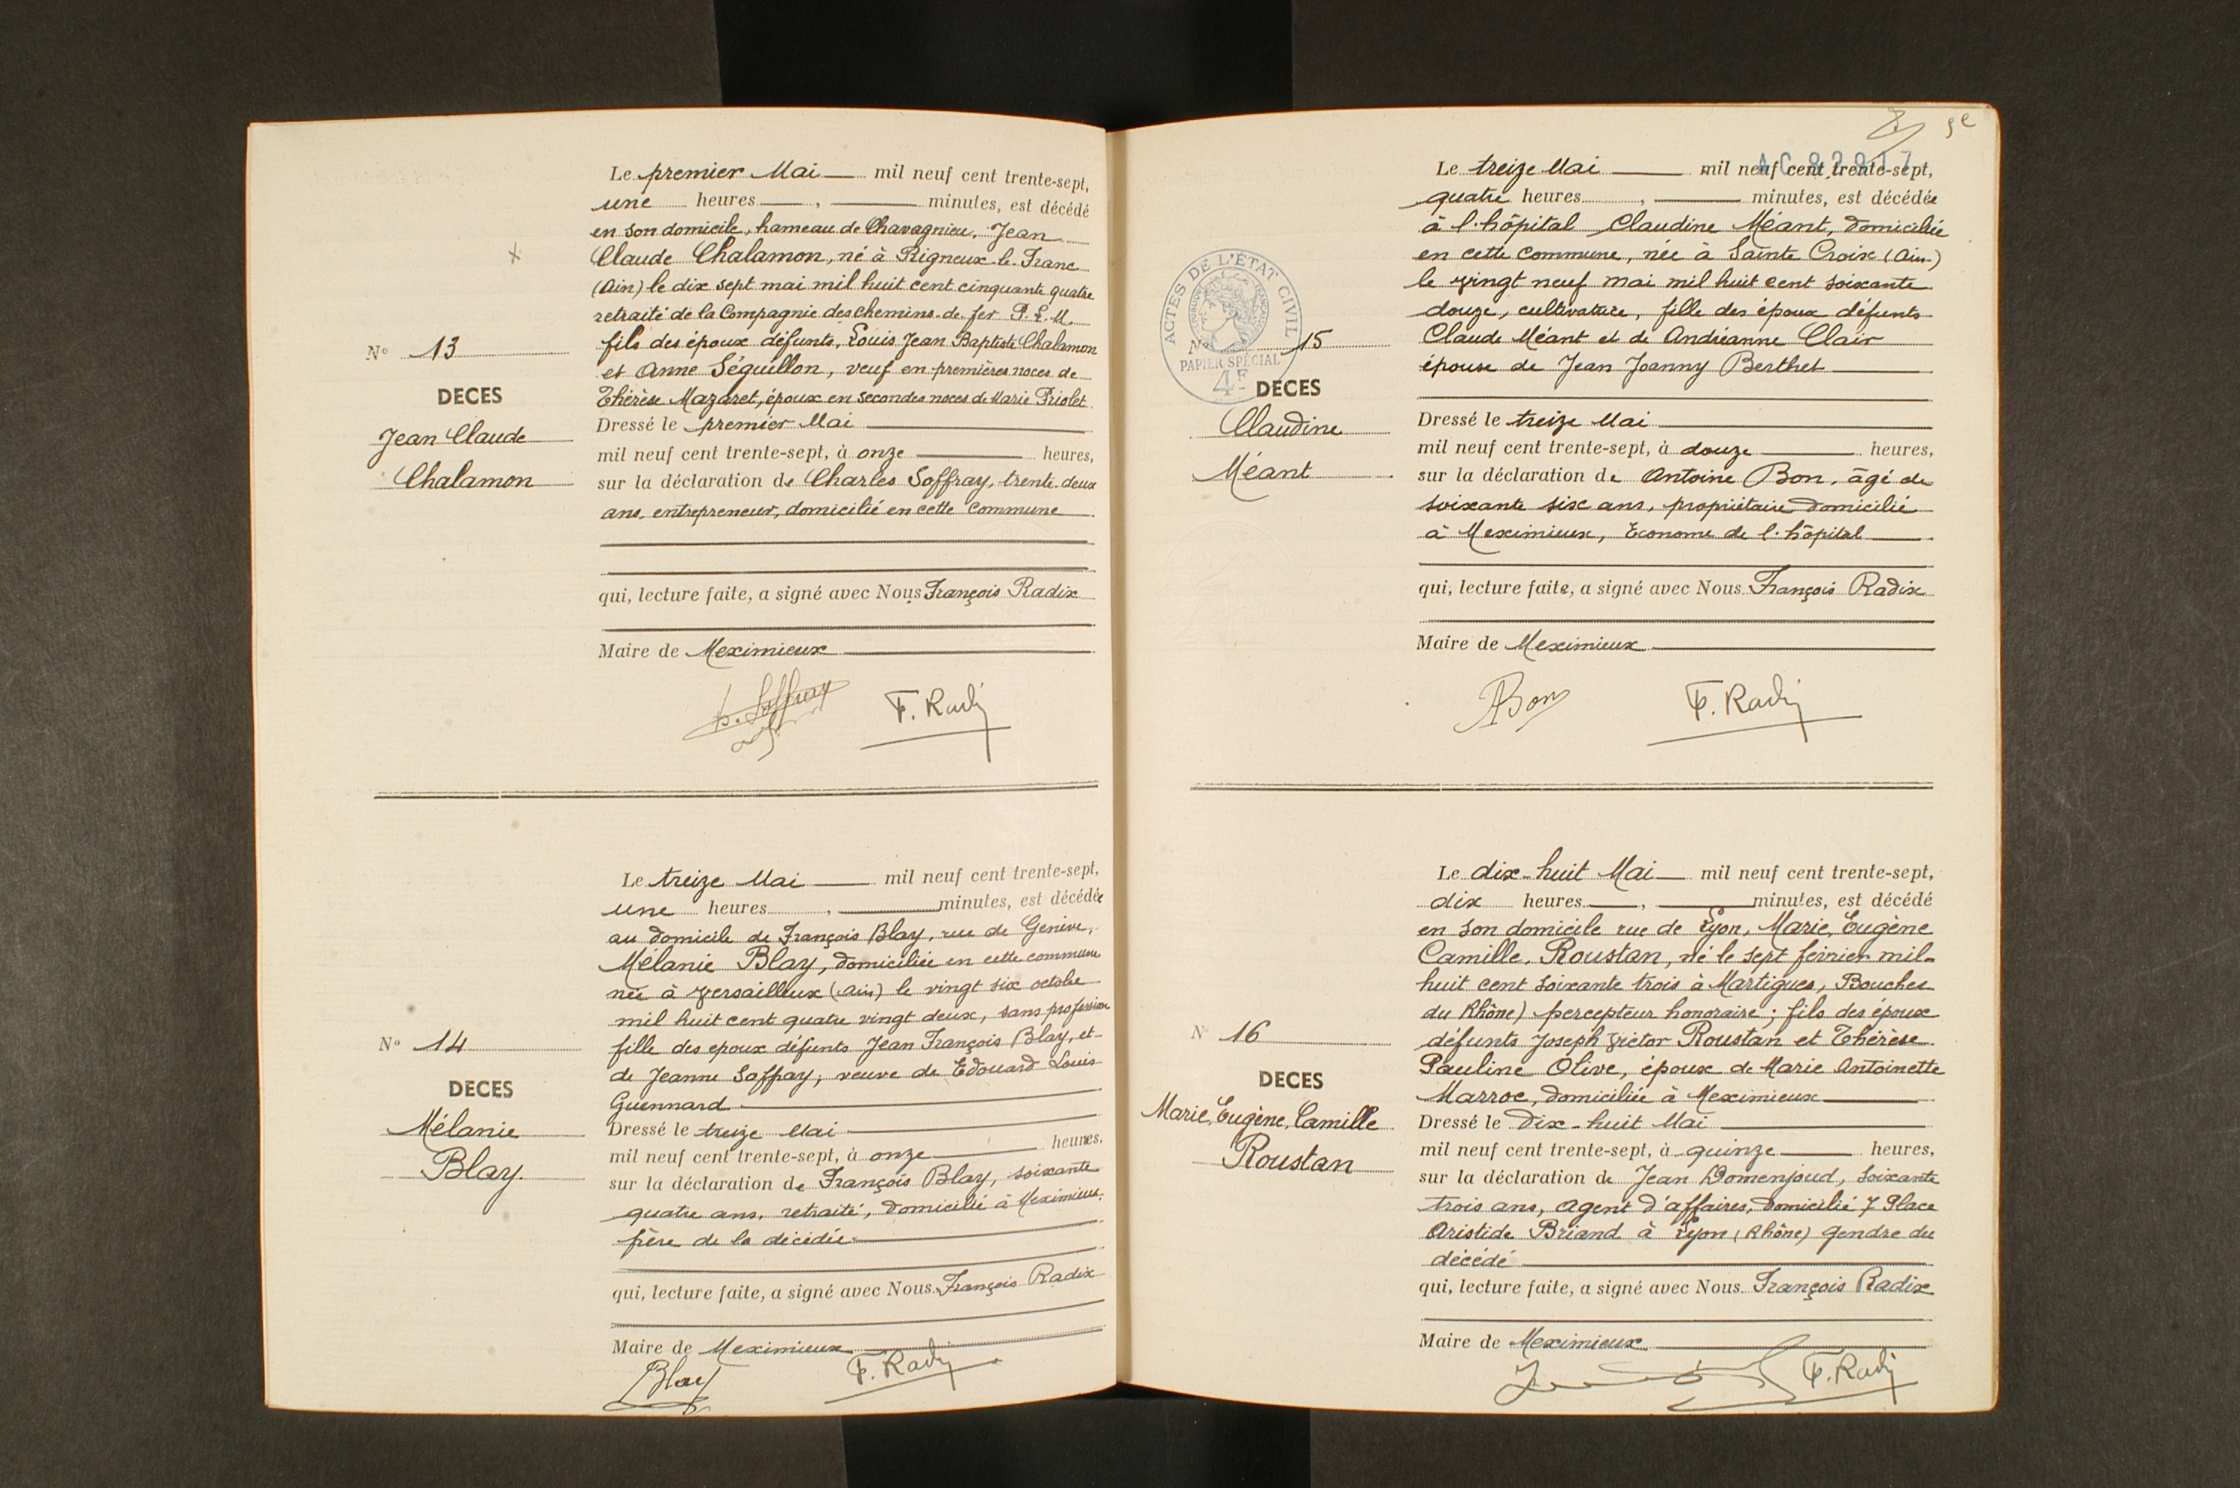 Le premier Mai mil neuf cent trente-sept,
une heures , minutes, est décédé
en son domicile, hameau de Chavagnieu, Jean
Claude Chalamon, né à Rigneux-le-Franc
(Ain) le dix sept mai mil huit cent cinquante quatre
retraité de la Compagnie des chemins de fer P.L.M.
fils des époux défunts, Louis Jean Baptiste Chalamon
et Anne Séguillon, veuf en premières noces de
Thérèse Mazaret, époux en secondes noces de Marie Priolet
N° 13
DECES
Jean Claude
Chalamon
Dressé le premier Mai
mil neuf cent trente-sept, à onze heures,
sur la déclaration de Charles Soffray, trente-deux
ans, entrepreneur, domicilié en cette commune
qui, lecture faite, a signé avec Nous François Radix
Maire de Meximieux
F. Radix
Le treize Mai mil neuf cent trente-sept,
une heures , minutes, est décédée
au domicile de François Blay, rue de Genève,
Mélanie Blay, domiciliée en cette commune
née à Versailleux (Ain) le vingt six octobre
mil huit cent quatre vingt deux, sans profession
fille des epoux défunts Jean François Blay, et
de Jeanne Soffray, veuve de Edouard Louis
Guennard
N° 14
DECES
Mélanie
Blay.
Dressé le treize Mai
mil neuf cent trente-sept, à onze heures.
sur la déclaration de François Blay, soixante
quatre ans, retraité, domicilié à Meximieux,
frère de la décédée
qui, lecture faite, a signé avec Nous François Radix
Maire de Meximieux
Blay F. Radix
5e
Le treize Mai mil neuf cent trente-sept,
quatre heures , minutes, est décédée
à l'hôpital Claudine Méant, domiciliée
en cette commune, née à Sainte Croix (Ain)
le vingt neuf mai mil huit cent soixante
douze, cultivatrice, fille des époux défunts
Claude Méant et de Andréanne Clair
épouse de Jean Joanny Berthet
ACTES DE L'ÉTAT CIVIL
PAPIER SPÉCIAL
4F
N° 15
DECES
Claudine
Méant
Dressé le treize Mai
mil neuf cent trente-sept, à douze heures,
sur la déclaration de Antoine Bon, âgé de
soixante six ans, propriétaire domicilié
à Meximieux, Econome de l'hôpital
qui, lecture faite, a signé avec Nous François Radix
Maire de Meximieux
ABon F. Radix
Le dix-huit Mai mil neuf cent trente-sept,
dix heures , minutes, est décédé
en son domicile rue de Lyon, Marie, Eugène
Camille, Roustan, né le sept février mil
huit cent soixante trois à Martigues, Bouches
du Rhône) percepteur honoraire; fils des époux
défunts Joseph Victor Roustan et Thérèse
Pauline Olive, époux de Marie Antoinette
Marroc, domiciliée à Meximieux
N° 16
DECES
Marie, Eugène, Camille
Roustan
Dressé le Dix-huit Mai
mil neuf cent trente-sept, à quinze heures,
sur la déclaration de Jean Domenjoud, soixante
trois ans, agent d'affaires, domicilié 7 Place
Aristide Briand à Lyon (Rhône) gendre du
décédé
qui, lecture faite, a signé avec Nous François Radix
Maire de Meximieux
F. Radix